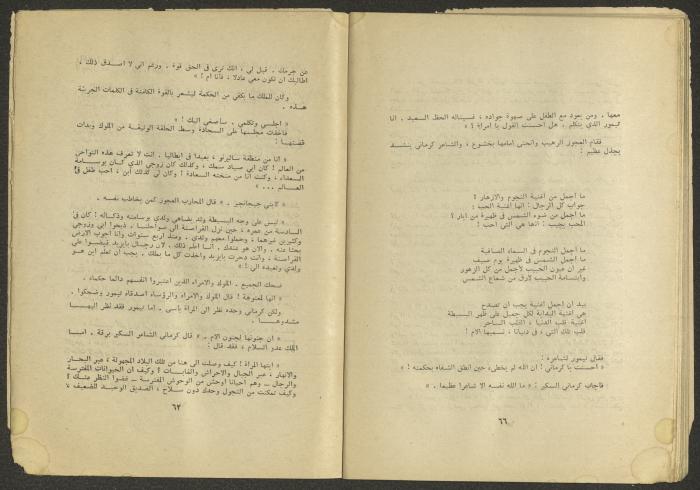 معها . ومن يعود مع الطفل على صهوة جواده ، فسيناله الحظ السعيد . انا
تيمور الذي يتكلم . هل احسنت القول يا امرأة ؟ »
فقام العجوز الرهيب وانحنى امامها بخشوع ، والشاعر كرماني ينشد
بجذل عظيم :
ما اجمل من اغنية النجوم والازهار ؟
جواب كل الرجال : انها اغنية الحب :
ما اجمل من ضوء الشمس في ظهيرة من ايار ؟
المحب يجيب : انها هي التي احب :
ما اجمل النجوم في السماء الصافية
ما اجمل الشمس في ظهيرة يوم صيف
غير ان عيون الحبيب لأجمل من كل الزهور
وابتسامة الحبيب لأرق من شعاع الشمس
بيد ان اجمل اغنية يجب ان تصدح
هي اغنية البداية لكل جميل على ظهر البسيطة
اغنية قلب الدنيا ، القلب الساحر
قلب تلك التي ، في دنيانا ، نسميها الام !
فقال تيمور لشاعره :
« احسنت يا كرماني ! ان الله لم يخطىء حين انطق الشفاه بحكمته ! »
فأجاب كرماني السكير : « ما الله نفسه الا شاعرا عظيما . »
٦٦
عن جرمك . قيل لي ، انك ترى في الحق قوة . ورغم اني لا اصدق ذلك ،
اطالبك ان تكون معي عادلا ، فأنا ام ! »
وكان للملك ما يكفي من الحكمة ليشعر بالقوة الكامنة في الكلمات الجريئة
هذه .
« اجلسي وتكلمي . سأصغي اليك ! »
فأخذت مجلسها على السجادة وسط الحلقة الوثيقة من الملوك وبدأت
قصتها :
« انا من منطقة سالرنو ، بعيدا في ايطاليا . انت لا تعرف هذه النواحي
من العالم ! كان ابي صياد سمك ، وكذلك كان زوجي الذي كان بوسامة
السعداء ، وكنت انا من منحته السعادة ! وكان لي كذلك ابن ، اجمل طفل في
العالم ... »
« كابني جيهانجير . » قال المحارب العجوز كمن يخاطب نفسه .
« ليس على وجه البسيطة ولد يضاهي ولدي بوسامته وذكائه ! كان في
السادسة من عمره ، حين نزل القراصنة الى سواحلنا . ذبحوا ابي وزوجي
وكثيرين غيرهما ، وخطفوا معهم ولدي . ومنذ اربع سنوات وانا اجوب الارض
بحثا عنه . والآن هو عندك . انا اعلم ذلك . لان رجال بايزيد قبضوا على
القراصنة ، وانت دحرت بايزيد واخذت كل ما يملك . يجب ان تعلم اين هو
ولدي وتعيده الي ! »
ضحك الجميع . الملوك والامراء الذين اعتبروا انفسهم دائما حكماء .
« انها لمعتوهة ! قال الملوك والامراء والرؤساء اصدقاء تيمور وضحكوا .
ولكن كرماني وحده نظر الى المرأة بأسى . اما تيمور فقد نظر اليها
مشدوها .
« ان جنونها لجنون الام . » قال كرماني الشاعر السكير برقة . امـا
الملك عدو السلام ، فقد قال :
« ايتها المرأة ! كيف وصلت الى هنا من تلك البلاد المجهولة ، عبر البحار
والانهار ، عبر الجبال والاحراش والغابات ؟ وكيف ان الحيوانات المفترسة
والرجال ــ وهم احيانا اوحش من الوحوش المفترسة ــ غضوا النظر عنك ؟
وكيف تمكنت من التجول وحدك دون سلاح ، الصديق الوحيد للضعيف ،
٦٣